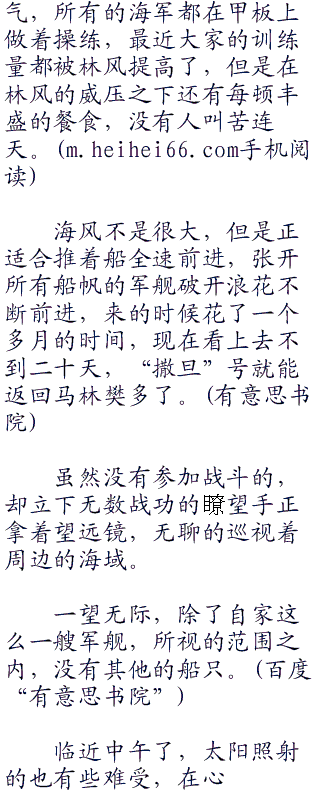 气，所有的海军都在甲板上
做着操练，最近大家的训练
量都被林风提高了，但是在
林风的威压之下还有每顿丰
盛的餐食，没有人叫苦连
天。(m.heihei66.com手机阅
读)
海风不是很大，但是正
适合推着船全速前进，张开
所有船帆的军舰破开浪花不
断前进，来的时候花了一个
多月的时间，现在看上去不
到二十天，“撒旦”号就能
返回马林樊多了。(有意思书
院)
虽然没有参加战斗的，
却立下无数战功的瞭望手正
拿着望远镜，无聊的巡视着
周边的海域。
一望无际，除了自家这
么一艘军舰，所视的范围之
内，没有其他的船只。(百度
“有意思书院”)
临近中午了，太阳照射
的也有些难受，在心